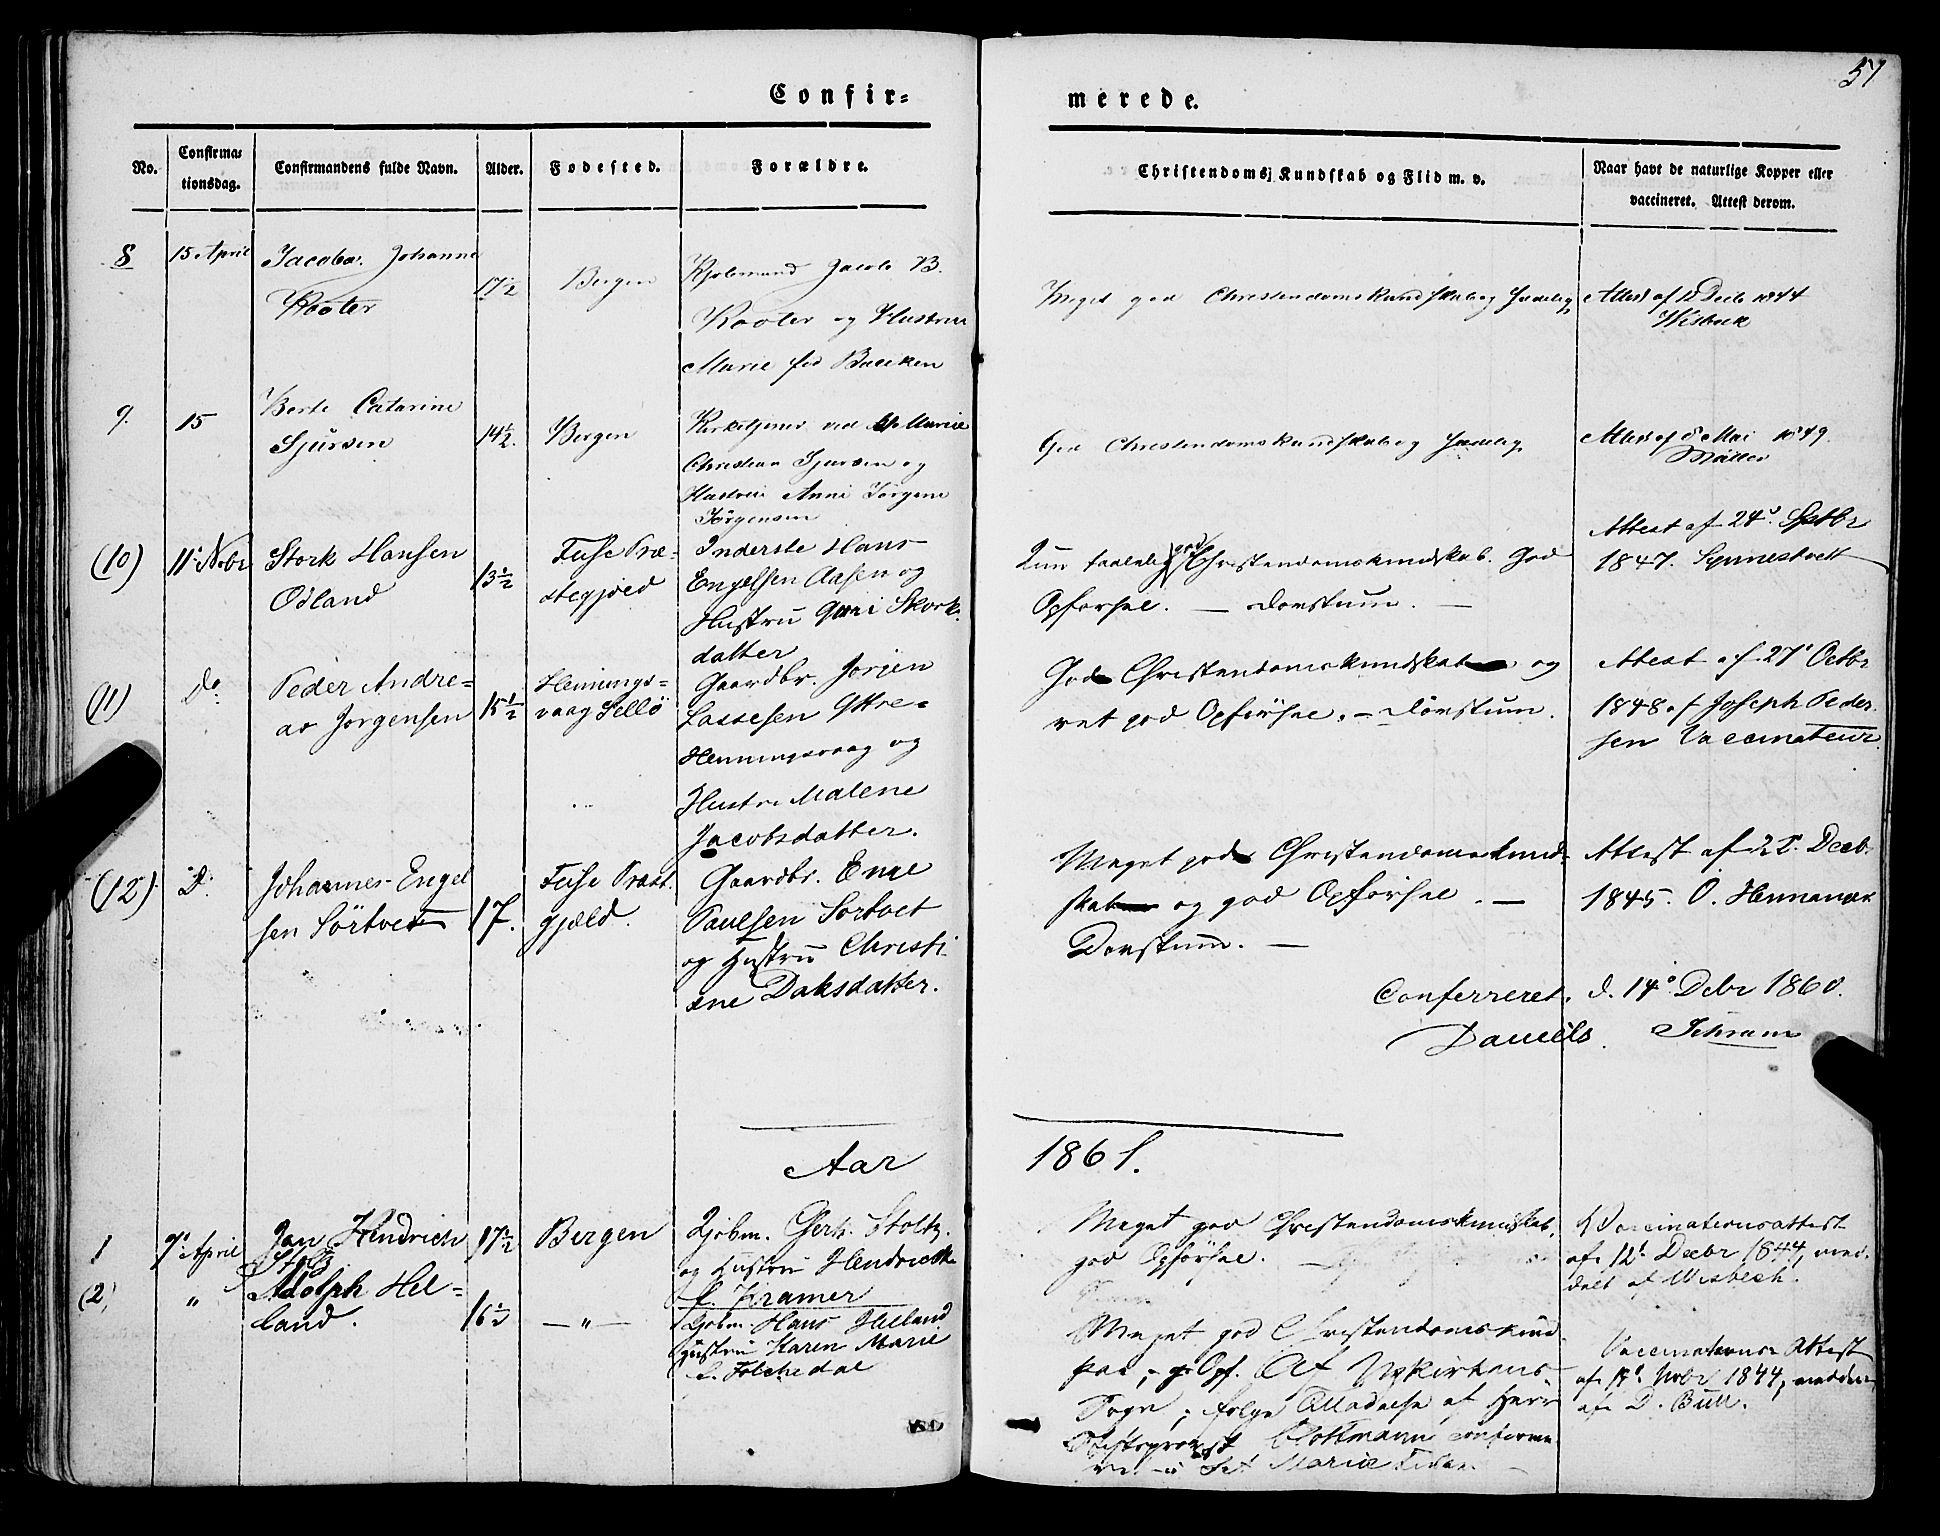 Confir=
merede.
57
No.
Confirma=
tionsdag.
Confirmandens fulde Navn.
Alder.
Fodested.
Forældre.
Christendoms; Kundskab og Flid m. v.
Naar havt de naturlige Kopper eller
vaccineret. Attest derom.
8 15 April Jacoba Johanne
Kooter
17½
Bergen
Kjøbmand Jacob B.
Kooter og Hustrue
Marie fød Baecken
Meget god Christendomskundskab og
Attest af 12 Decbr 1844
Wisbeck
9. 15
Berte Catarine
Sjursen
14½
Bergen
Kirketjener ved Marie
Christian Sjursen og
Hustrue Anne Jørgene
Jörgensen
God Christendomskundskab og
Attest af 8 Mai 1849.
Møller
(10) 11' Nobr
Stork Hansen
Odland
13½
Fuse Præ-
stegjæld
Inderste Hans
Engelsen Aasen og
Hustru Guri Skork.
datter
Kun taalelig god Christendomskundskab. God
Opförsel. — Dovstum. —
Attest af 24' Sptbr
1847. Synnestvett
(11) Do
Peder Andre=
as Jorgensen
15½
Hennings=
vaag Sellö
Gaardbr. Jorjen
Lassesen Yttre=
Henningsvaag og
Hustru Malene
Jacobsdatter.
God Christendomskundskab og
ret god Opförsel. — Dövstum.
Attest af 27' Octbr
1848 af Joseph Peder
sen Vaccinateur.
(12) D.
Johannes Engel
sen Sörtvet
17.
Fuse Præst.
gjæld.
Gaardbr. Engel
Paulsen Sortvet
og Hustru Christi
ane Daksdatter.
Meget god Christendomskund-
skab og god Opförsel. —
Dovstum. —
Attest af 22. Decbr
1845. O.
Conferreret. d. 14' Debr 1860.
Daniels. Schram
Aar
1861.
1 7' April
Jan Hendrich
Stoltz
17½
Bergen
Kjøbm. Gerh. Stoltz.
og Hustru Hendrikke
f. Kramer
Meget god Christendomskundskab,
god Opförsel.
Vaccinationsattest
af 12' Decbr 1844, med-
delt af Wisbech.
(2) "
Adolph Hel=
land.
16½
— " —
Kjøbm. Hans Helland
Hustru Karen Marie
f. Folkedal
Meget god Christendomskund
skab, g. Opf. Af Nykirkens
Sogn; folge Tilladelse af Herr
Stiftsprovst confirme
ret i Sct Mariæ Kirke.
Vaccinations Attest
af 14' Nobr 1844, meddelt
af D. Bull.